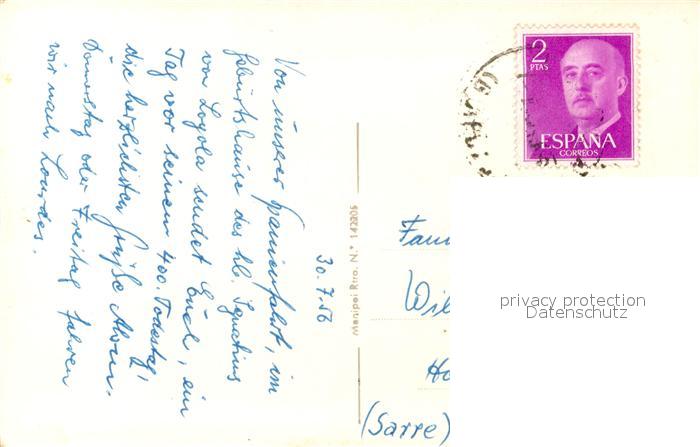 30.7.56
Von unserer Spanienfahrt, im
Geburtshause des hl. Ignatius
von Loyola sendet Euch, ein
Tag vor seinem 400. Todestag,
die herzlichsten Grüße
Donnerstag oder Freitag fahren
wir nach Lourdes.
Matipei Rtro. N.° 142205
2
PTAS
ESPAÑA
CORREOS
Fam
Wil
Ho
(Sarre)
privacy protection
Datenschutz